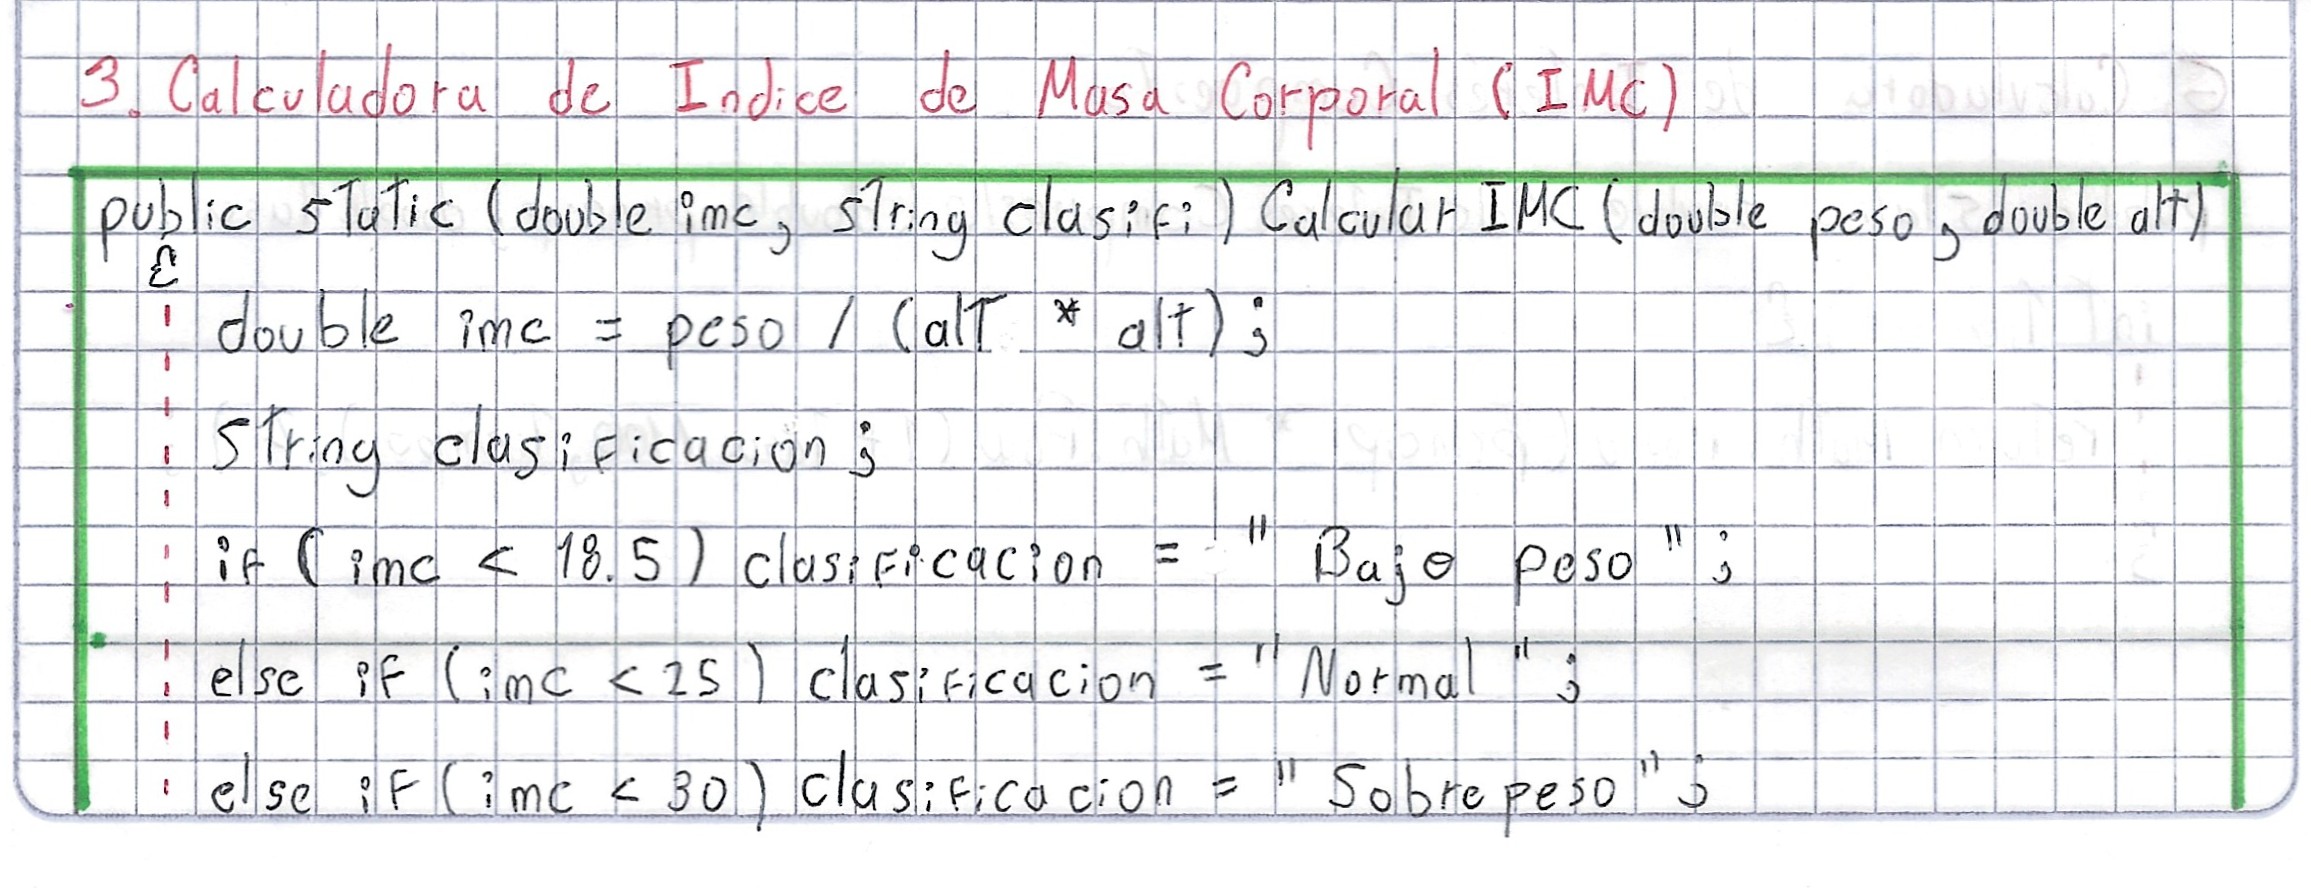 3. Calculadora de Indice de Masa Corporal (IMC)
public static (double imc, string clasifi) Calcular IMC (double peso, double alt)
{
double imc = peso / (alt * alt);
string clasificacion;
if (imc < 18.5) clasificacion = "Bajo peso";
else if (imc < 25) clasificacion = "Normal";
else if (imc < 30) clasificacion = "Sobrepeso";